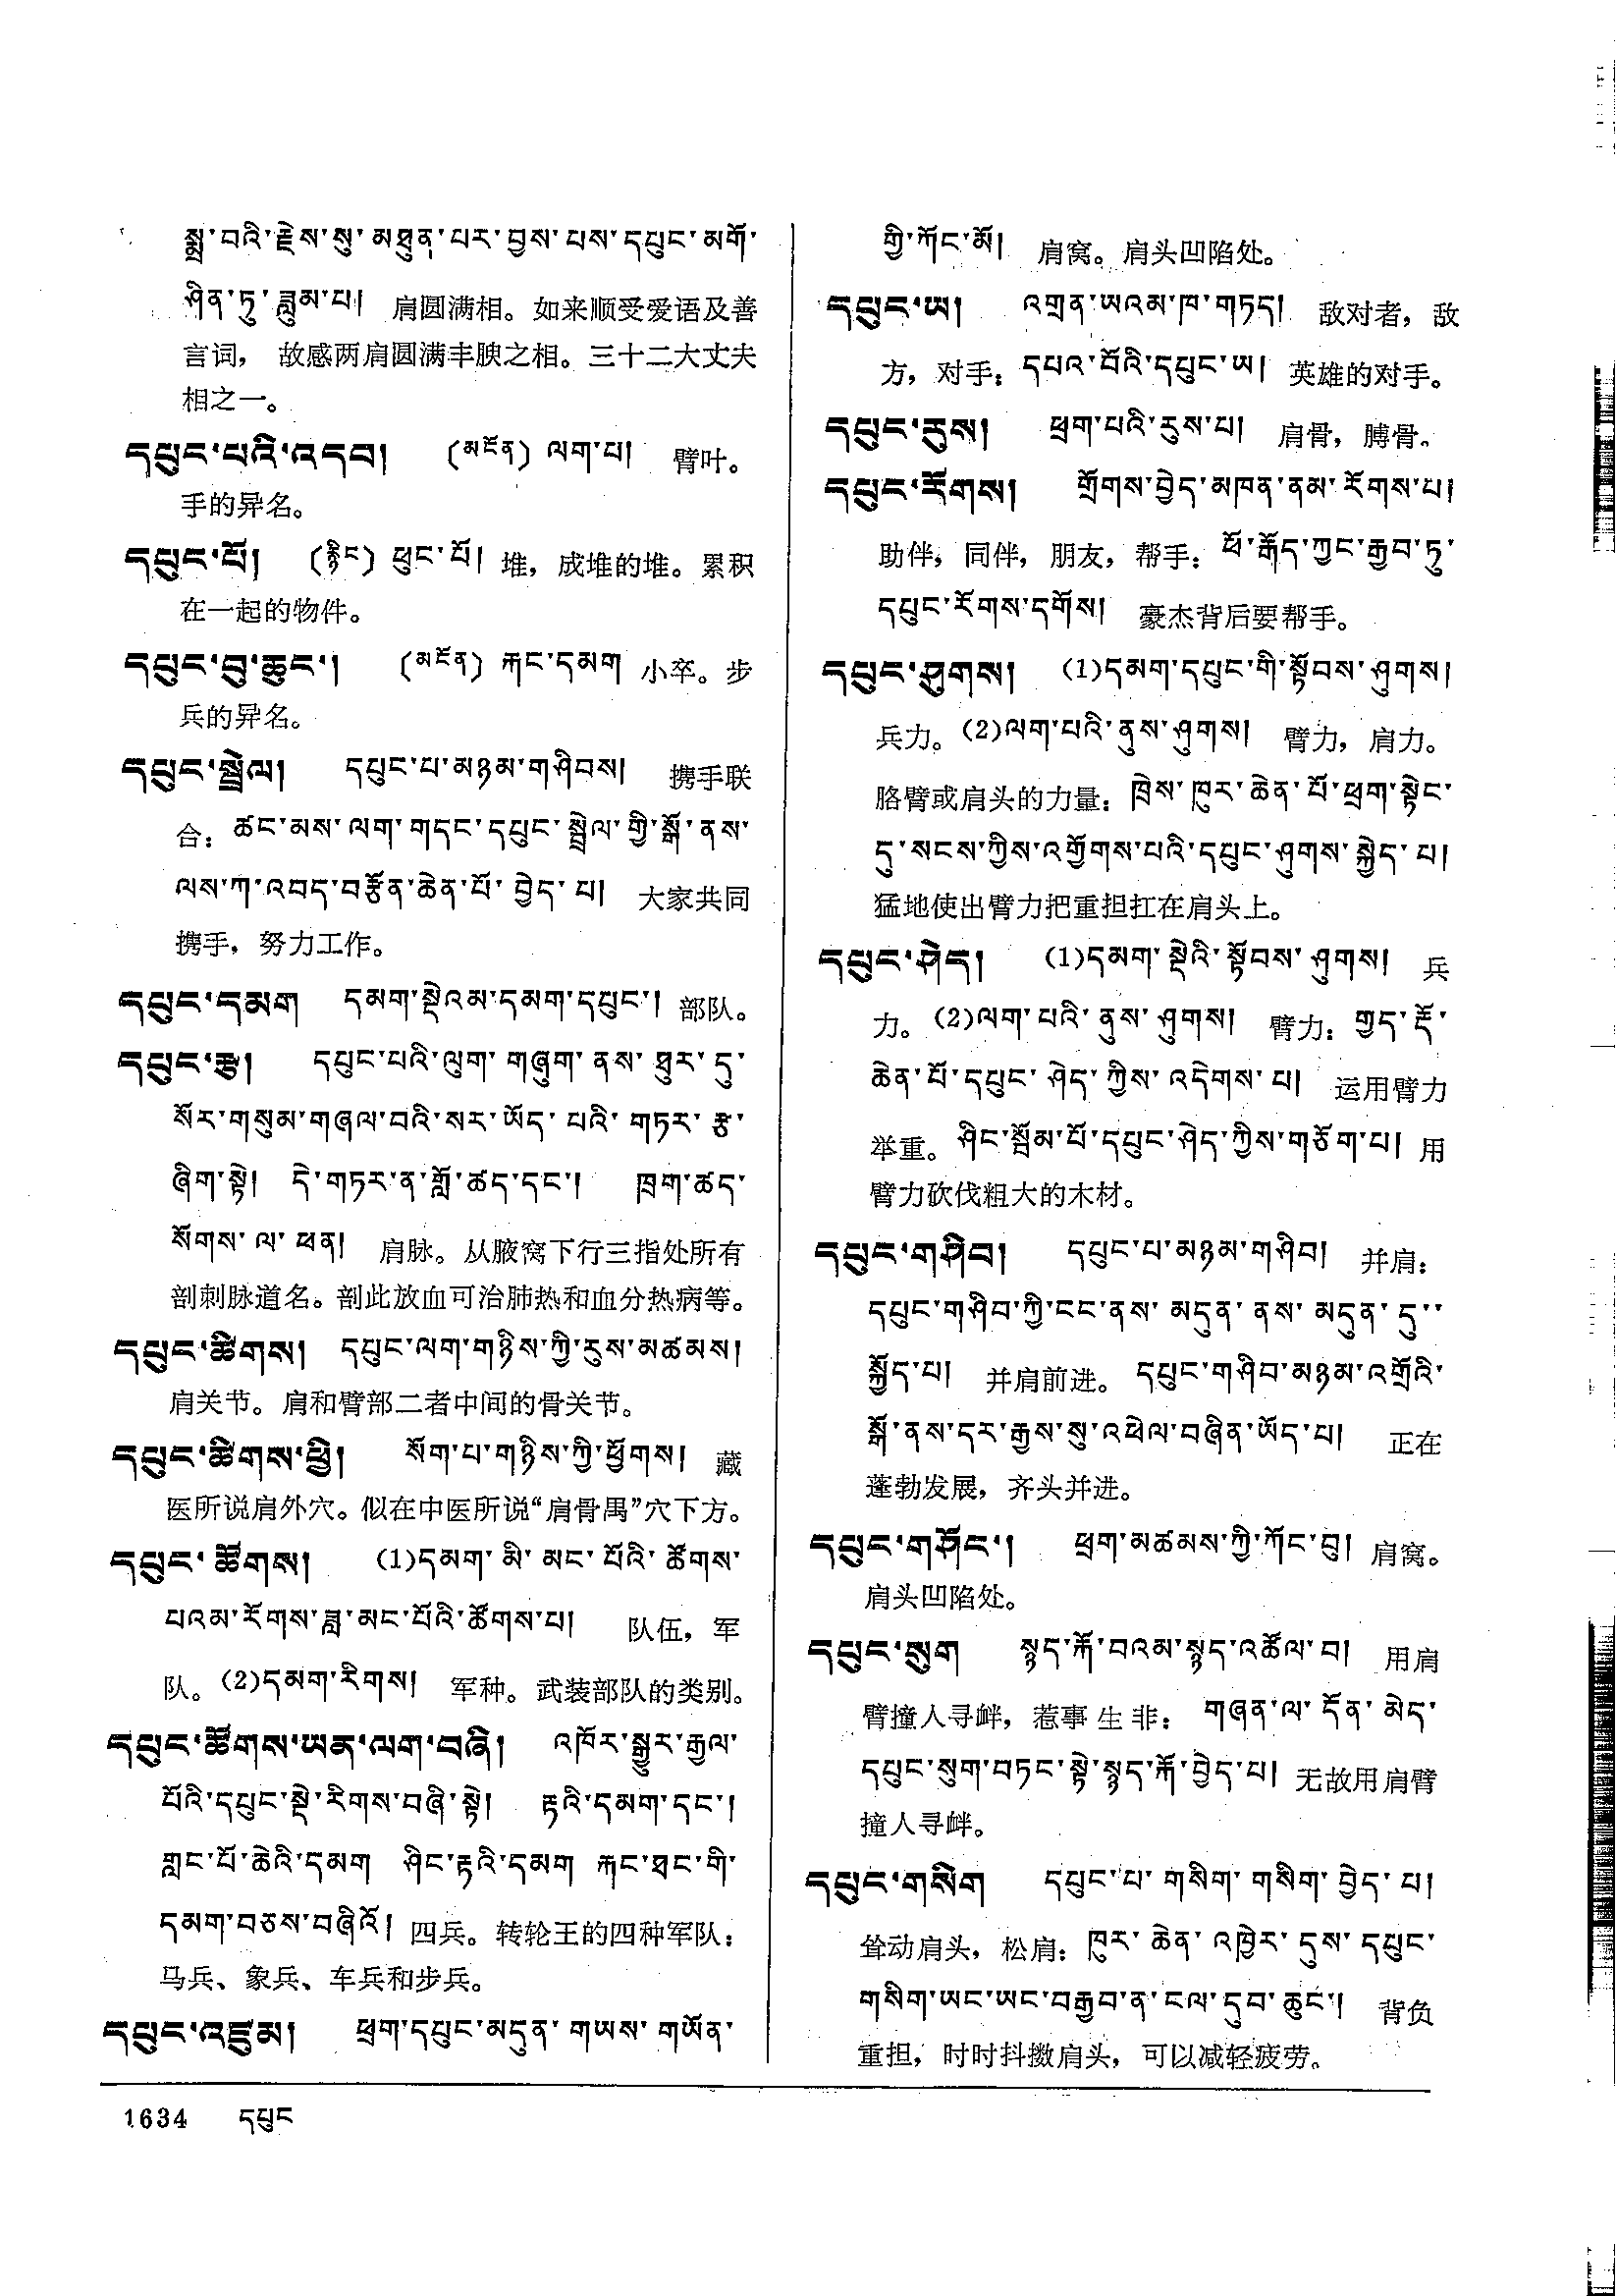 སྨྲ་བའི་རྗེས་སུ་མཐུན་པར་བྱས་པས་དཔུང་མགོ་
ཤིན་ཏུ་ཟླུམ་པ། 肩圆满相。如来顺受爱语及善
言词， 故感两肩圆满丰腴之相。三十二大丈夫
相之一。
དཔུང་པའི་འདབ། (མངོན) ལག་པ། 臂叶。
手的异名。
དཔུང་པོ། (རྙིང) ཕུང་པོ། 堆，成堆的堆。累积
在一起的物件。
དཔུང་བུ་ཆུང་། (མངོན) རྐང་དམག 小卒。步
兵的异名。
དཔུང་སྦྲེལ། དཔུང་པ་མཉམ་གཤིབས། 携手联
合：ཚང་མས་ལག་གདང་དཔུང་སྦྲེལ་གྱི་སྒོ་ནས་
ལས་ཀ་འབད་བརྩོན་ཆེན་པོ་བྱེད་པ། 大家共同
携手，努力工作。
དཔུང་དམག དམག་སྡེའམ་དམག་དཔུང་། 部队。
དཔུང་རྩ། དཔུང་པའི་ལུག་གཞུག་ནས་ཐུར་དུ་
སོར་གསུམ་གཞལ་བའི་སར་ཡོད་པའི་གཏར་རྩ་
ཞིག་སྟེ། དེ་གཏར་ན་གློ་ཚད་དང་། ཁྲག་ཚད་
སོགས་ལ་ཕན། 肩脉。从腋窝下行三指处所有
剖刺脉道名。剖此放血可治肺热和血分热病等。
དཔུང་ཚིགས། དཔུང་ལག་གཉིས་ཀྱི་རུས་མཚམས།
肩关节。肩和臂部二者中间的骨关节。
དཔུང་ཚིགས་ཕྱི། སོག་པ་གཉིས་ཀྱི་ཕྱོགས། 藏
医所说肩外穴。似在中医所说“肩骨禺”穴下方。
དཔུང་ཚོགས། (1)དམག་མི་མང་པོའི་ཚོགས་
པའམ་རོགས་ཟླ་མང་པོའི་ཚོགས་པ། 队伍，军
队。(2)དམག་རིགས། 军种。武装部队的类别。
དཔུང་ཚོགས་ཡན་ལག་བཞི། འཁོར་སྒྱུར་རྒྱལ་
པོའི་དཔུང་སྡེ་རིགས་བཞི་སྟེ། རྟའི་དམག་དང་།
གླང་པོ་ཆེའི་དམག ཤིང་རྟའི་དམག རྐང་ཐང་གི་
དམག་བཅས་བཞིའོ། 四兵。转轮王的四种军队：
马兵、象兵、车兵和步兵。
དཔུང་འཛུམ། ཕྲག་དཔུང་མདུན་གཡས་གཡོན་
གྱི་ཀོང་མོ། 肩窝。肩头凹陷处。
དཔུང་ཡ། འགྲན་ཡའམ་ཁ་གཏད། 敌对者，敌
方，对手：དཔའ་བོའི་དཔུང་ཡ། 英雄的对手。
དཔུང་རུས། ཕྲག་པའི་རུས་པ། 肩骨，膊骨。
དཔུང་རོགས། གྲོགས་བྱེད་མཁན་ནམ་རོགས་པ།
助伴，同伴，朋友，帮手：ཕོ་རྒོད་ཀྱང་རྒྱབ་ཏུ་
དཔུང་རོགས་དགོས། 豪杰背后要帮手。
དཔུང་ཤུགས། (1)དམག་དཔུང་གི་སྟོབས་ཤུགས།
兵力。(2)ལག་པའི་ནུས་ཤུགས། 臂力，肩力。
胳臂或肩头的力量：ཁྲེས་ཁུར་ཆེན་པོ་ཕྲག་སྟེང་
དུ་སངས་ཀྱིས་འགྱོགས་པའི་དཔུང་ཤུགས་སྐྱེད་པ།
猛地使出臂力把重担扛在肩头上。
དཔུང་ཤེད། (1)དམག་སྡེའི་སྟོབས་ཤུགས། 兵
力。(2)ལག་པའི་ནུས་ཤུགས། 臂力：གྱད་རྡོ་
ཆེན་པོ་དཔུང་ཤེད་ཀྱིས་འདེགས་པ། 运用臂力
举重。ཤིང་སྦོམ་པོ་དཔུང་ཤེད་ཀྱིས་གཅོག་པ། 用
臂力砍伐粗大的木材。
དཔུང་གཤིབ། དཔུང་པ་མཉམ་གཤིབ། 并肩：
དཔུང་གཤིབ་ཀྱི་ངང་ནས་མདུན་ནས་མདུན་དུ་
སྐྱོད་པ། 并肩前进。 དཔུང་གཤིབ་མཉམ་འགྲོའི་
སྒོ་ནས་དར་རྒྱས་སུ་འཕེལ་བཞིན་ཡོད་པ། 正在
蓬勃发展，齐头并进。
དཔུང་གཤོང་། ཕྲག་མཚམས་ཀྱི་ཀོང་བུ། 肩窝。
肩头凹陷处。
དཔུང་སུག སྙད་རྐོ་བའམ་སྙད་འཚོལ་བ། 用肩
臂撞人寻衅，惹事生非：གཞན་ལ་དོན་མེད་
དཔུང་སུག་བཏང་སྟེ་སྙད་རྐོ་བྱེད་པ། 无故用肩臂
撞人寻衅。
དཔུང་གསིག དཔུང་པ་གསིག་གསིག་བྱེད་པ།
耸动肩头，松肩：ཁུར་ཆེན་འཁྱེར་དུས་དཔུང་
གསིག་ཡང་ཡང་བརྒྱབ་ན་ངལ་དུབ་ཆུང་། 背负
重担，时时抖擞肩头，可以减轻疲劳。
1634 དཔུང